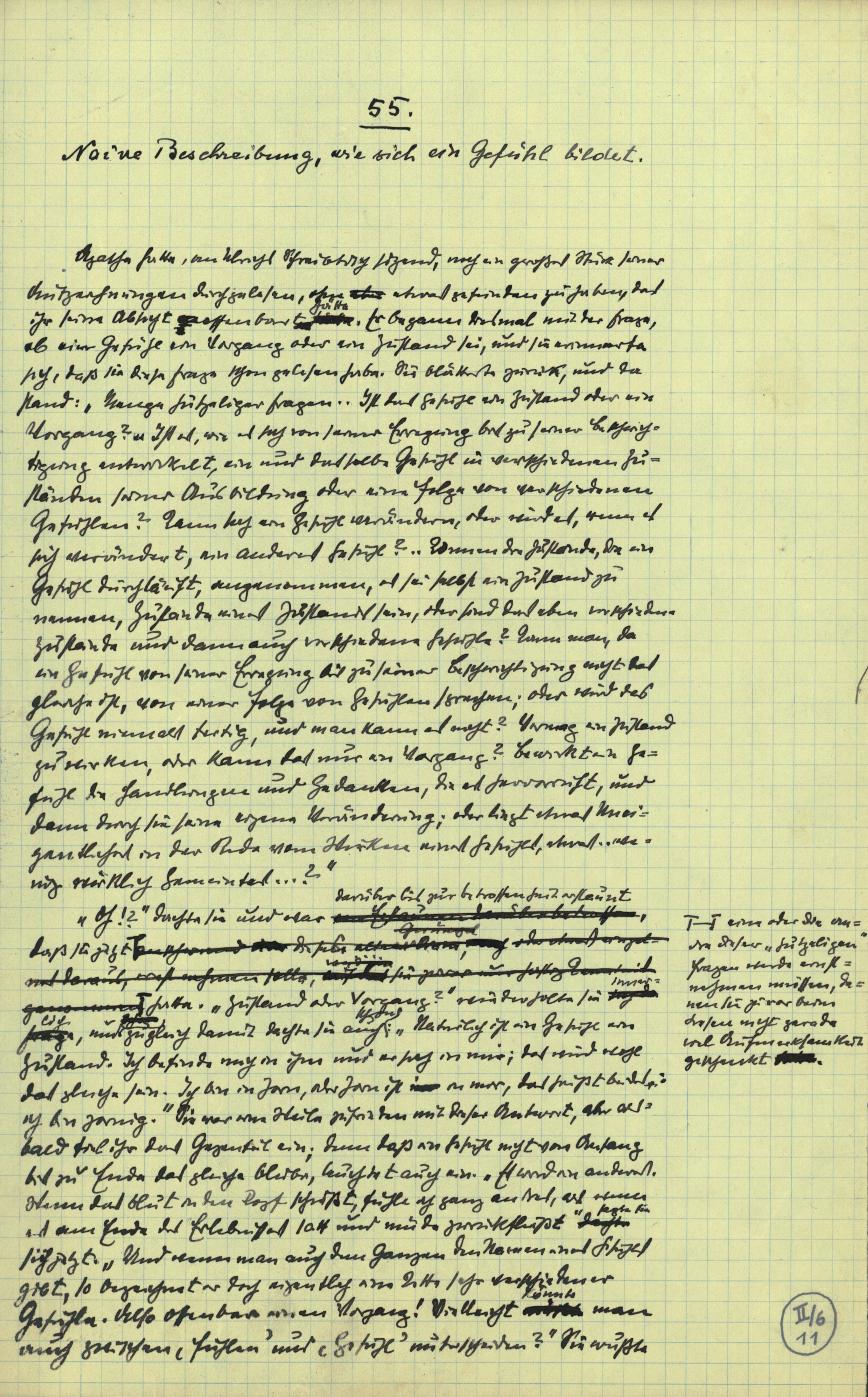 55.
Naive Beschreibung, wie sich ein Gefühl bildet.
Agathe hatte, an Ulrichs Schreibtisch sitzend, noch ein großes Stück seiner
Aufzeichnungen durchgelesen, ohne etwas gefunden zu haben, das
ihr seine Absicht offenbart hätte. Er begann diesmal mit der Frage,
ob ein Gefühl ein Vorgang oder ein Zustand sei, und sie erinnerte
sich, daß sie diese Frage schon gelesen habe. Sie blätterte zurück, und da
stand: „ Menge spitzeliger Fragen .. Ist das Gefühl ein Zustand oder ein
Vorgang? Ist es, wie es sich von seiner Erregung bis zu seiner Beschwich-
tigung entwickelt, ein und dasselbe Gefühl in verschiedenen Zu-
ständen seiner Ausbildung oder eine Folge von verschiedenen
Gefühlen? Kann sich ein Gefühl verändern, oder wird es, wenn es
sich verändert, ein anderes Gefühl? .. Können die Zustände, die ein
Gefühl durchläuft, angenommen, es sei selbst ein Zustand zu
nennen, Zustände eines Zustands sein, oder sind das eben verschiedene
Zustände und dann auch verschiedene Gefühle? Kann man, da
ein Gefühl von seiner Erregung bis zu seiner Beschwichtigung nicht das
gleiche ist, von einer Folge von Gefühlen sprechen; oder wird das
Gefühl niemals fertig, und man kann es nicht? Vermag ein Zustand
zu wirken, oder kann das nur ein Vorgang? Bewirkt ein Ge-
fühl die Handlungen und Gedanken, die es hervorruft, und
dann durch sie seine eigene Veränderung; oder liegt etwas Unei-
gentliches in der Rede vom Wirken eines Gefühls, etwas .. we-
nig wirklich Gemeintes ...?"
„ Oh!?" dachte sie und war darüber bis zur Betroffenheit erstaunt,
daß sie jetzt
hatte. „ Zustand oder Vorgang?" wiederholte sie
, und zugleich damit dachte sie auch schon: „ Natürlich ist ein Gefühl ein
Zustand. Ich befinde mich in ihm und er sich in mir; das wird wohl
das gleiche sein. Ich bin in Zorn, oder Zorn ist in mir, das heißt beides:
ich bin zornig." Sie war eine Weile zufrieden mit dieser Antwort, aber als-
bald fiel ihr das Gegenteil ein; denn daß ein Gefühl nicht von Anfang
bis zu Ende das gleiche bleibe, leuchtet auch ein. „ Es wird ein anderes.
Wenn das Blut in den Kopf schießt, fühle ich ganz anders, als wenn
es am Ende des Erlebnisses satt und müde zurückfließt" sagte sie
sich jetzt. „ Und wenn man auch dem Ganzen den Namen eines Gefühls
gibt, so bezeichnet er doch eigentlich eine Kette sehr verschiedener
Gefühle. Also offenbar einen Vorgang! Vielleicht könnte man
auch zwischen ‚fühlen' und ‚Gefühl' unterscheiden?" Sie wußte
eine oder die an-
dre dieser „spitzeligen"
Fragen werde ernst-
nehmen müssen, de-
nen sie zuvor beim
Lesen nicht gerade
viel Aufmerksamkeit
geschenkt
II/6
11